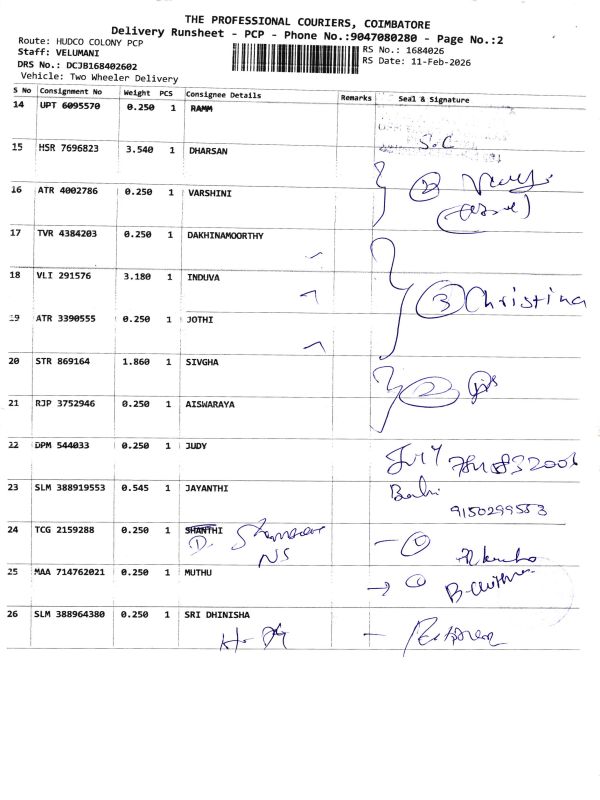 THE PROFESSIONAL COURIERS, COIMBATORE
Delivery Runsheet - PCP - Phone No.:9047080280 - Page No.:2
Route: HUDCO COLONY PCP
Staff: VELUMANI
DRS No.: DCJB168402602
Vehicle: Two Wheeler Delivery
RS No.: 1684026
RS Date: 11-Feb-2026
S No Consignment No Weight PCS Consignee Details Remarks Seal & Signature
14 UPT 6095570 0.250 1 RAMM S.C
15 HSR 7696823 3.540 1 DHARSAN
16 ATR 4002786 0.250 1 VARSHINI 2
17 TVR 4384203 0.250 1 DAKHINAMOORTHY
18 VLI 291576 3.180 1 INDUVA 3 Christina
19 ATR 3390555 0.250 1 JOTHI
20 STR 869164 1.860 1 SIVGHA 2
21 RJP 3752946 0.250 1 AISWARAYA
22 DPM 544033 0.250 1 JUDY
23 SLM 388919553 0.545 1 JAYANTHI 9150299553
24 TCG 2159288 0.250 1 SHANTHI
NS
25 MAA 714762021 0.250 1 MUTHU
26 SLM 388964380 0.250 1 SRI DHINISHA